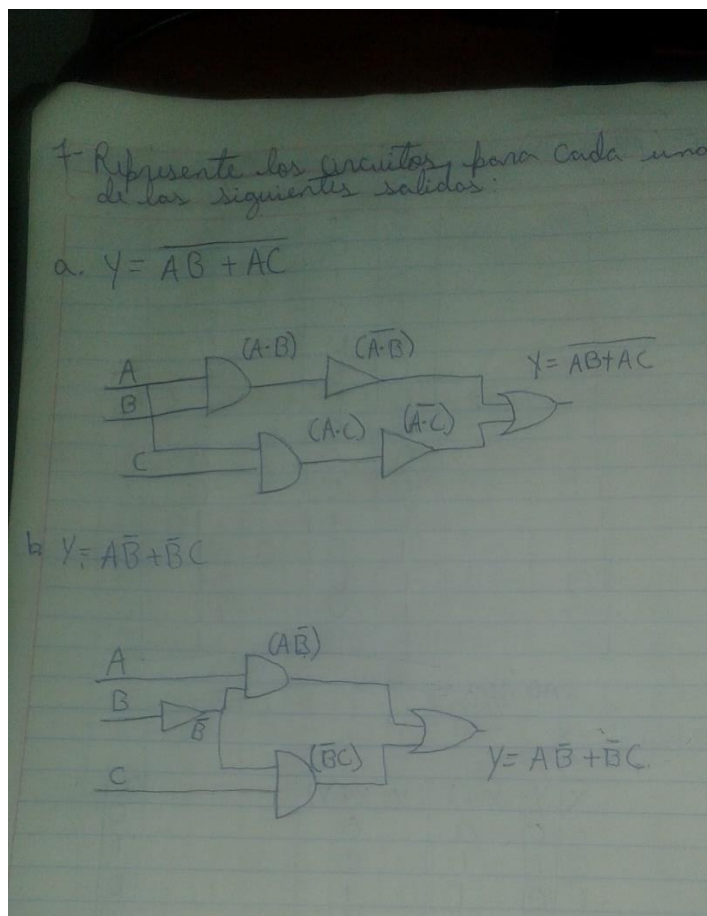 7- Represente los circuitos, para cada una
de las siguientes salidas:
a. Y = \overline{AB + AC}
(A·B) (\overline{A·B})
A
B
Y = \overline{AB+AC}
(A·C) (\overline{A·C})
C
b. Y = A\overline{B} + \overline{B}C
(A\overline{B})
A
B
\overline{B}
(\overline{B}C)
C
Y = A\overline{B} + \overline{B}C.